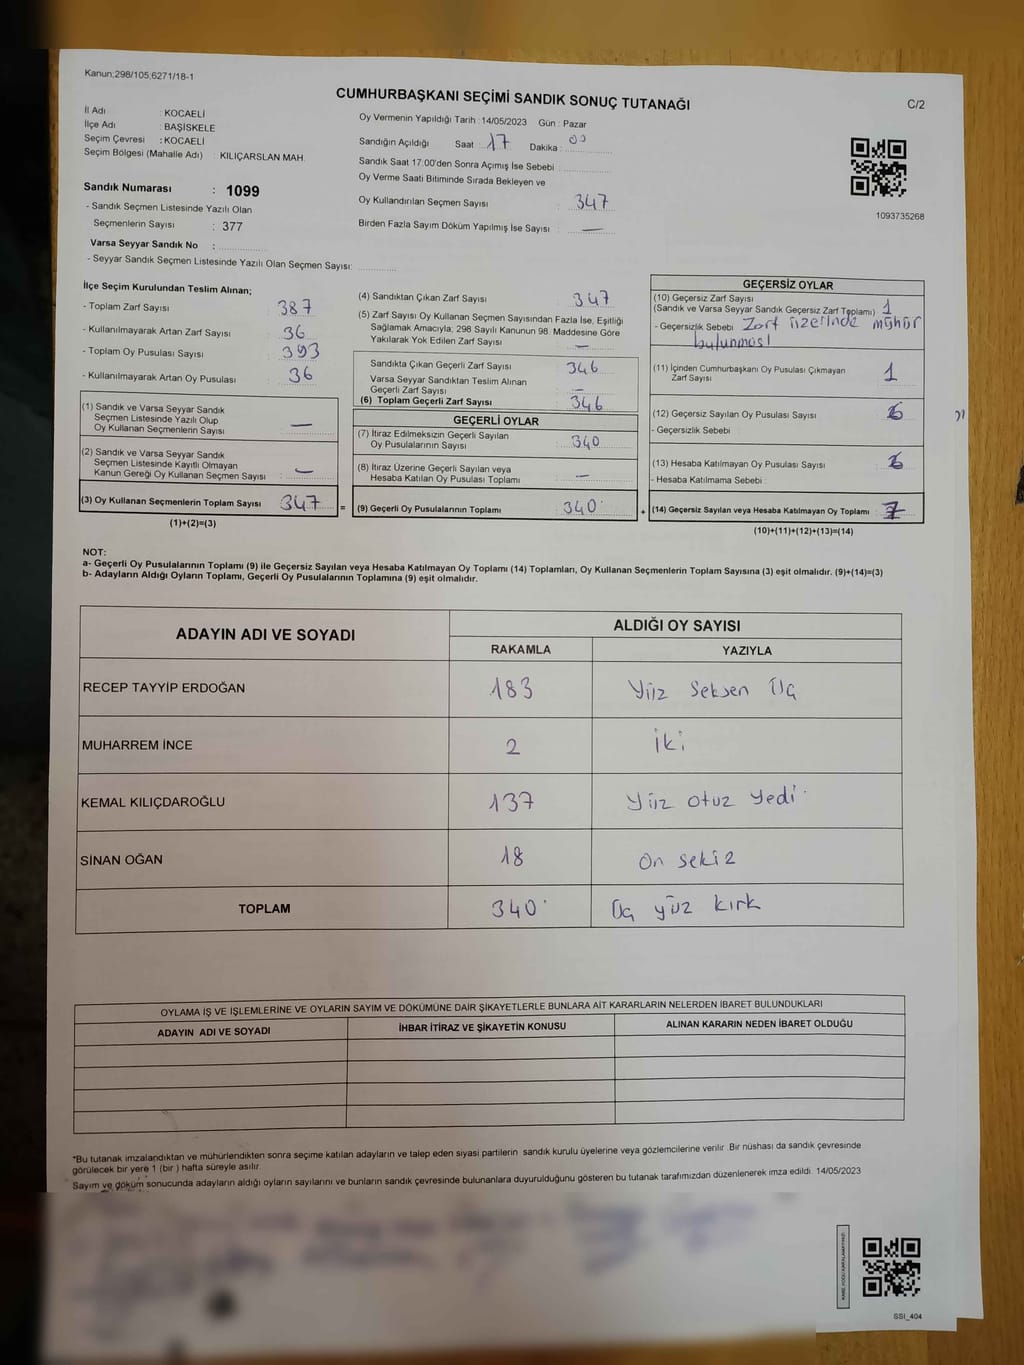 Kanun;298/105;6271/18-1
CUMHURBAŞKANI SEÇİMİ SANDIK SONUÇ TUTANAĞI
C/2
İl Adı : KOCAELİ
İlçe Adı : BAŞİSKELE
Seçim Çevresi : KOCAELİ
Seçim Bölgesi (Mahalle Adı) : KILIÇARSLAN MAH.
Sandık Numarası : 1099
- Sandık Seçmen Listesinde Yazılı Olan
Seçmenlerin Sayısı : 377
Varsa Seyyar Sandık No :
- Seyyar Sandık Seçmen Listesinde Yazılı Olan Seçmen Sayısı:
Oy Vermenin Yapıldığı Tarih : 14/05/2023 Gün : Pazar
Sandığın Açıldığı Saat : 17 Dakika : 00
Sandık Saat 17:00'den Sonra Açımış İse Sebebi
Oy Verme Saati Bitiminde Sırada Bekleyen ve
Oy Kullandırılan Seçmen Sayısı : 347
Birden Fazla Sayım Döküm Yapılmış İse Sayısı : —
1093735268
İlçe Seçim Kurulundan Teslim Alınan;
- Toplam Zarf Sayısı : 387
- Kullanılmayarak Artan Zarf Sayısı : 36
- Toplam Oy Pusulası Sayısı : 393
- Kullanılmayarak Artan Oy Pusulası : 36
(1) Sandık ve Varsa Seyyar Sandık
Seçmen Listesinde Yazılı Olup
Oy Kullanan Seçmenlerin Sayısı : —
(2) Sandık ve Varsa Seyyar Sandık
Seçmen Listesinde Kayıtlı Olmayan
Kanun Gereği Oy Kullanan Seçmen Sayısı : —
(3) Oy Kullanan Seçmenlerin Toplam Sayısı : 347 =
(1)+(2)=(3)
(4) Sandıktan Çıkan Zarf Sayısı : 347
(5) Zarf Sayısı Oy Kullanan Seçmen Sayısından Fazla İse, Eşitliği
Sağlamak Amacıyla, 298 Sayılı Kanunun 98. Maddesine Göre
Yakılarak Yok Edilen Zarf Sayısı : —
Sandıkta Çıkan Geçerli Zarf Sayısı : 346
Varsa Seyyar Sandıktan Teslim Alınan
Geçerli Zarf Sayısı : —
(6) Toplam Geçerli Zarf Sayısı : 346
GEÇERLİ OYLAR
(7) İtiraz Edilmeksizin Geçerli Sayılan
Oy Pusulalarının Sayısı : 340
(8) İtiraz Üzerine Geçerli Sayılan veya
Hesaba Katılan Oy Pusulası Toplamı : —
(9) Geçerli Oy Pusulalarının Toplamı : 340 +
GEÇERSİZ OYLAR
(10) Geçersiz Zarf Sayısı
(Sandık ve Varsa Seyyar Sandık Geçersiz Zarf Toplamı) 1
- Geçersizlik Sebebi Zarf üzerinde mühür
bulunması
(11) İçinden Cumhurbaşkanı Oy Pusulası Çıkmayan
Zarf Sayısı : 1
(12) Geçersiz Sayılan Oy Pusulası Sayısı
- Geçersizlik Sebebi :
(13) Hesaba Katılmayan Oy Pusulası Sayısı
- Hesaba Katılmama Sebebi :
(14) Geçersiz Sayılan veya Hesaba Katılmayan Oy Toplamı : 7
(10)+(11)+(12)+(13)=(14)
NOT:
a- Geçerli Oy Pusulalarının Toplamı (9) ile Geçersiz Sayılan veya Hesaba Katılmayan Oy Toplamı (14) Toplamları, Oy Kullanan Seçmenlerin Toplam Sayısına (3) eşit olmalıdır. (9)+(14)=(3)
b- Adayların Aldığı Oyların Toplamı, Geçerli Oy Pusulalarının Toplamına (9) eşit olmalıdır.
ADAYIN ADI VE SOYADI
ALDIĞI OY SAYISI
RAKAMLA YAZIYLA
RECEP TAYYİP ERDOĞAN 183 Yüz Seksen Üç
MUHARREM İNCE 2 İki
KEMAL KILIÇDAROĞLU 137 Yüz otuz yedi
SİNAN OĞAN 18 On sekiz
TOPLAM 340 Üç yüz kırk
OYLAMA İŞ VE İŞLEMLERİNE VE OYLARIN SAYIM VE DÖKÜMÜNE DAİR ŞİKAYETLERLE BUNLARA AİT KARARLARIN NELERDEN İBARET BULUNDUKLARI
ADAYIN ADI VE SOYADI İHBAR İTİRAZ VE ŞİKAYETİN KONUSU ALINAN KARARIN NEDEN İBARET OLDUĞU
*Bu tutanak imzalandıktan ve mühürlendikten sonra seçime katılan adayların ve talep eden siyasi partilerin sandık kurulu üyelerine veya gözlemcilerine verilir. Bir nüshası da sandık çevresinde
görülecek bir yere 1 (bir ) hafta süreyle asılır.
Sayım ve döküm sonucunda adayların aldığı oyların sayılarını ve bunların sandık çevresinde bulunanlara duyurulduğunu gösteren bu tutanak tarafımızdan düzenlenerek imza edildi. 14/05/2023
SSI_404